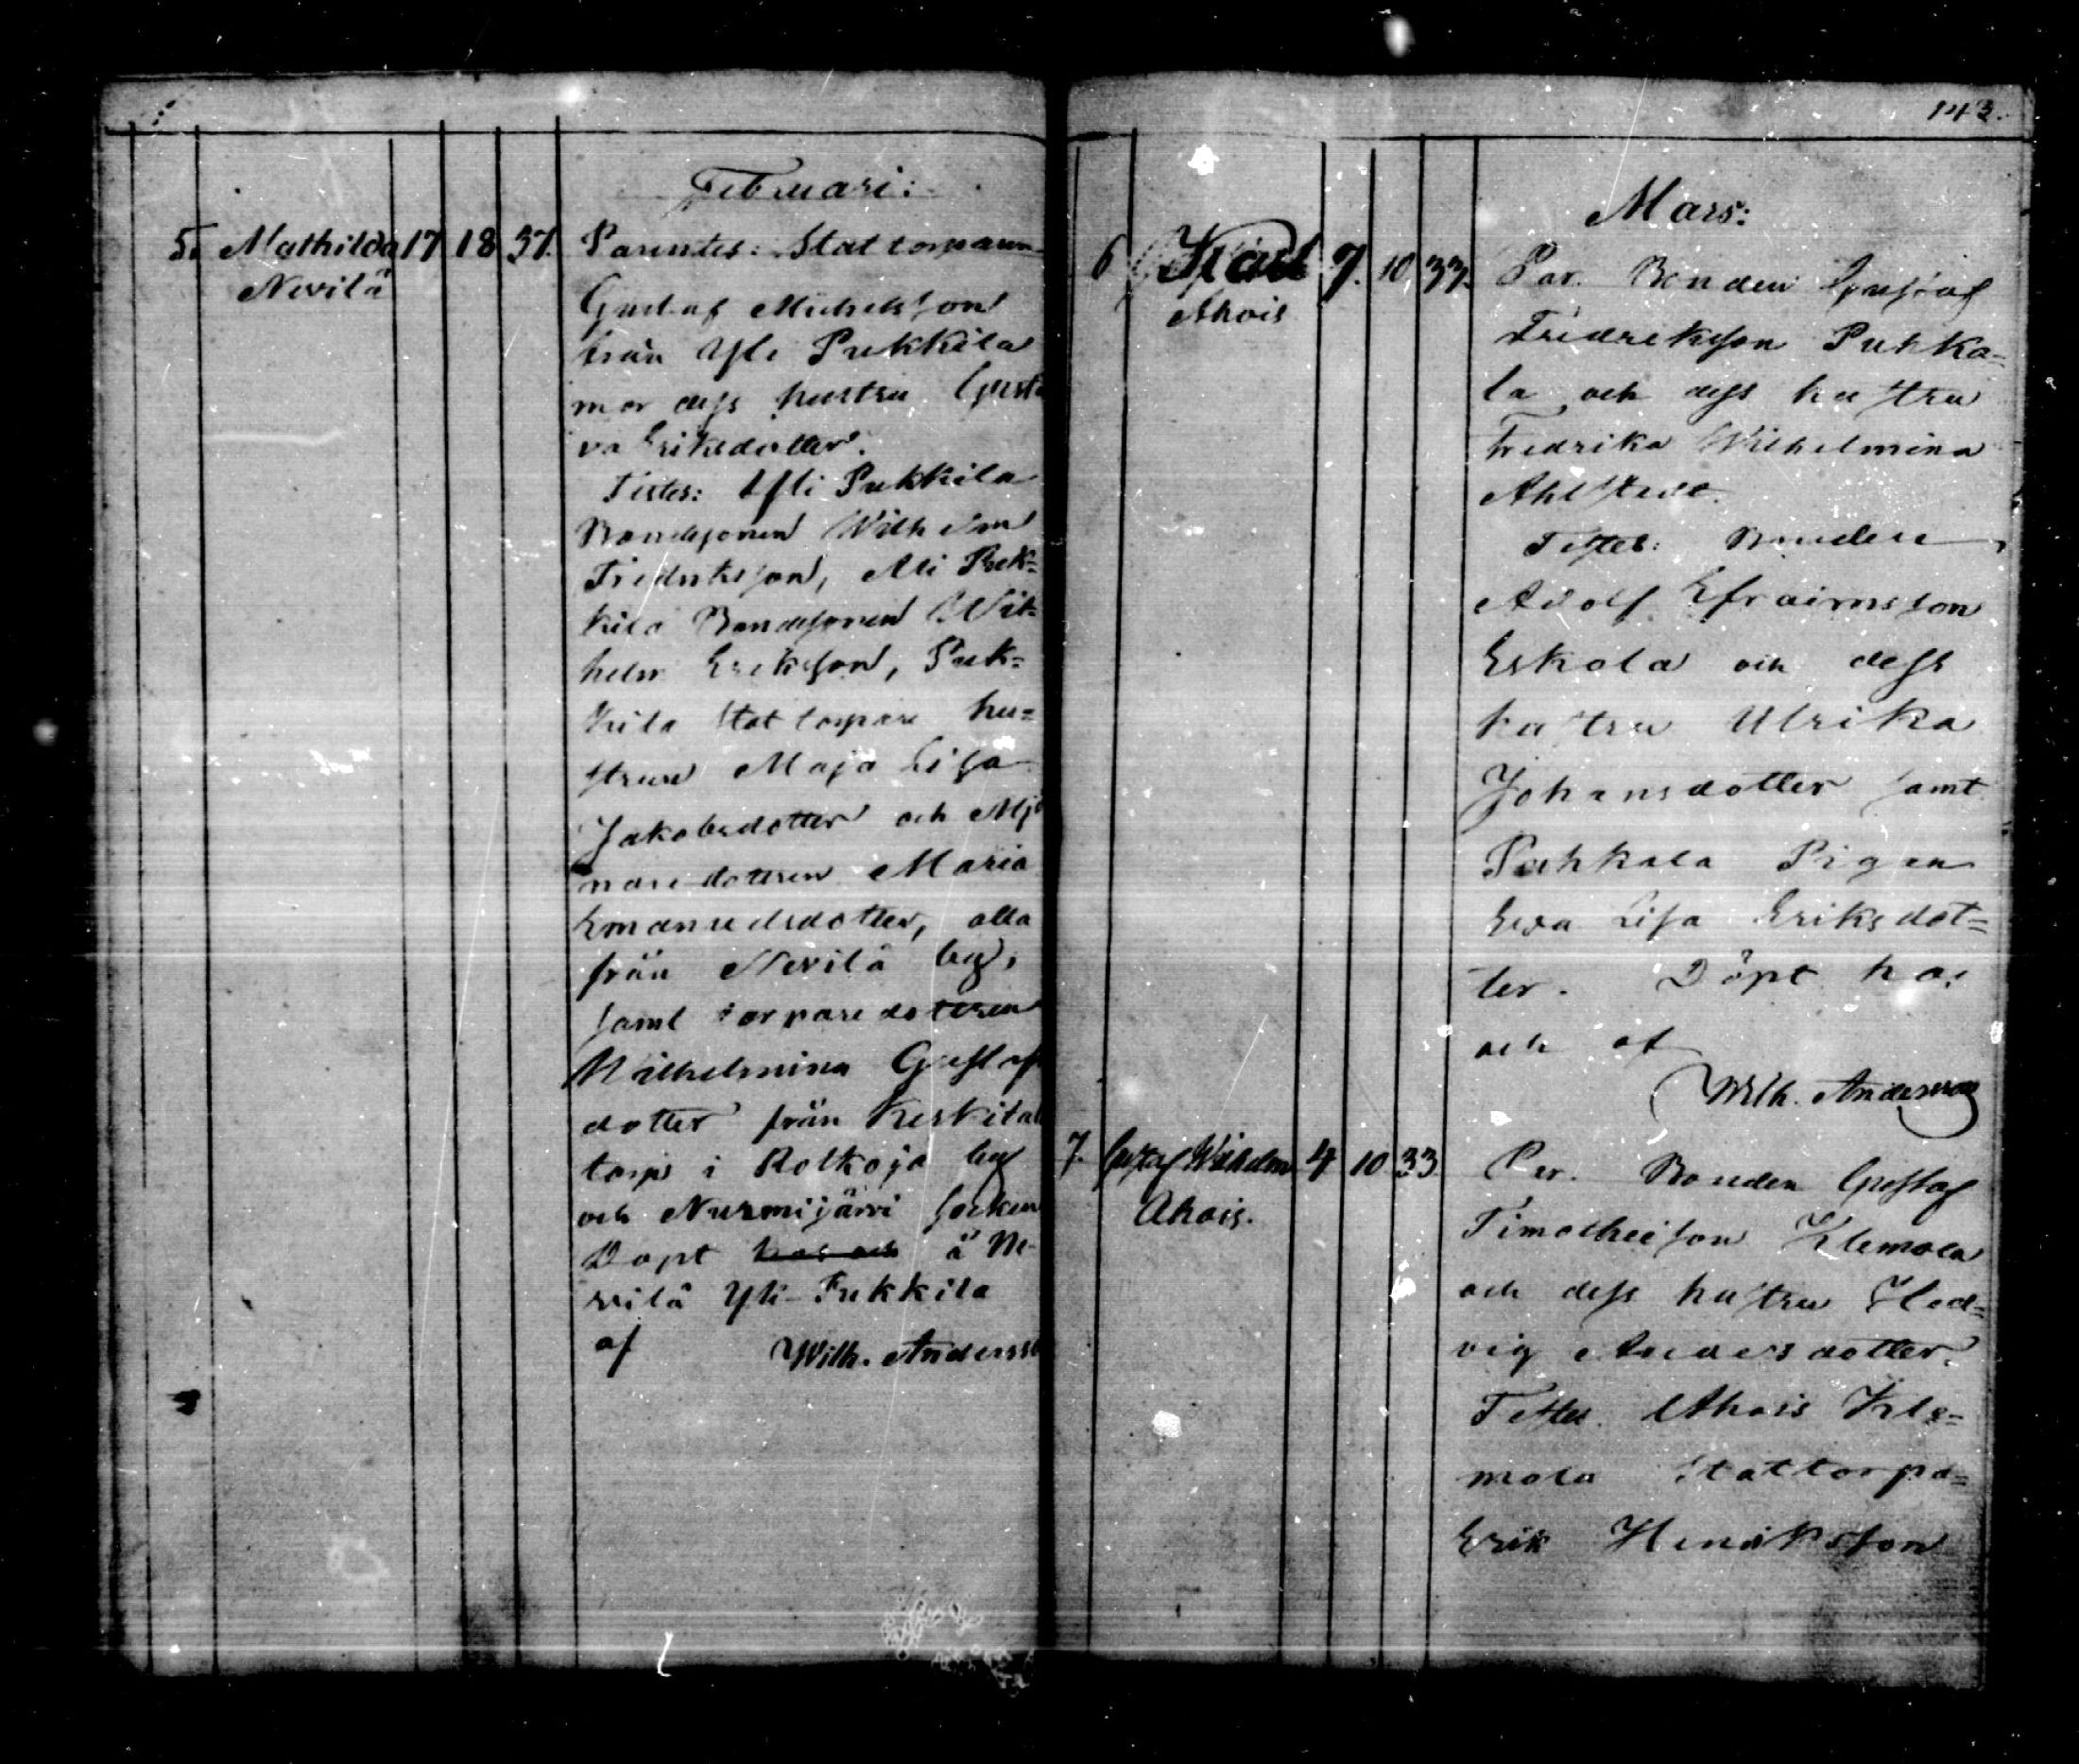 Februari:
5. Mathilda 17 18 37. Parentes: Stattorparen
Nevilä
Gustaf Michelsson
från Yli Pukkila
mor dess hustru Gusta
va Eriksdotter.
Testes: Yli Pukkila
Bondesonen Wilhelm
Fredriksson, Ali Puk=
kila Bondesonen Wil=
helm Eriksson, Puk=
kila Stattorpare hu=
strun Maja Lisa
Jakobsdotter och Mjö
naredottren Maria
Emanuelsdotter, alla
från Nevilä by,
samt torparedottren
Wilhelmina Gustafs
dotter från Keskitalo
torp i Rotkoja by
och Nurmijärvi socken
Döpt hos och å Ne
vilä Yli-Pukkila
af Wilh. Andersso
143.
Mars:
6 Karl 7. 10. 33. Par. Bonden Gustaf
Ahois
Fredriksson Puhka=
la och dess hustru
Fredrika Wilhelmina
Ahlstedt.
Testes: Bonden
Adolf Efraimsson
Eskola och dess
hustru Ulrika
Johansdotter samt
Puhkala Pigan
Eva Lisa Eriksdot=
ter. Döpt hos
och af
Wilh. Andersson
7. Gustaf Wilhelm 4 10 33 Par. Bonden Gustaf
Ahois.
Timotheisson Klemola
och dess hustru Hed=
vig Andersdotter.
Testes Ahois Kle=
mola Stattorpa=
Erik Henriksson